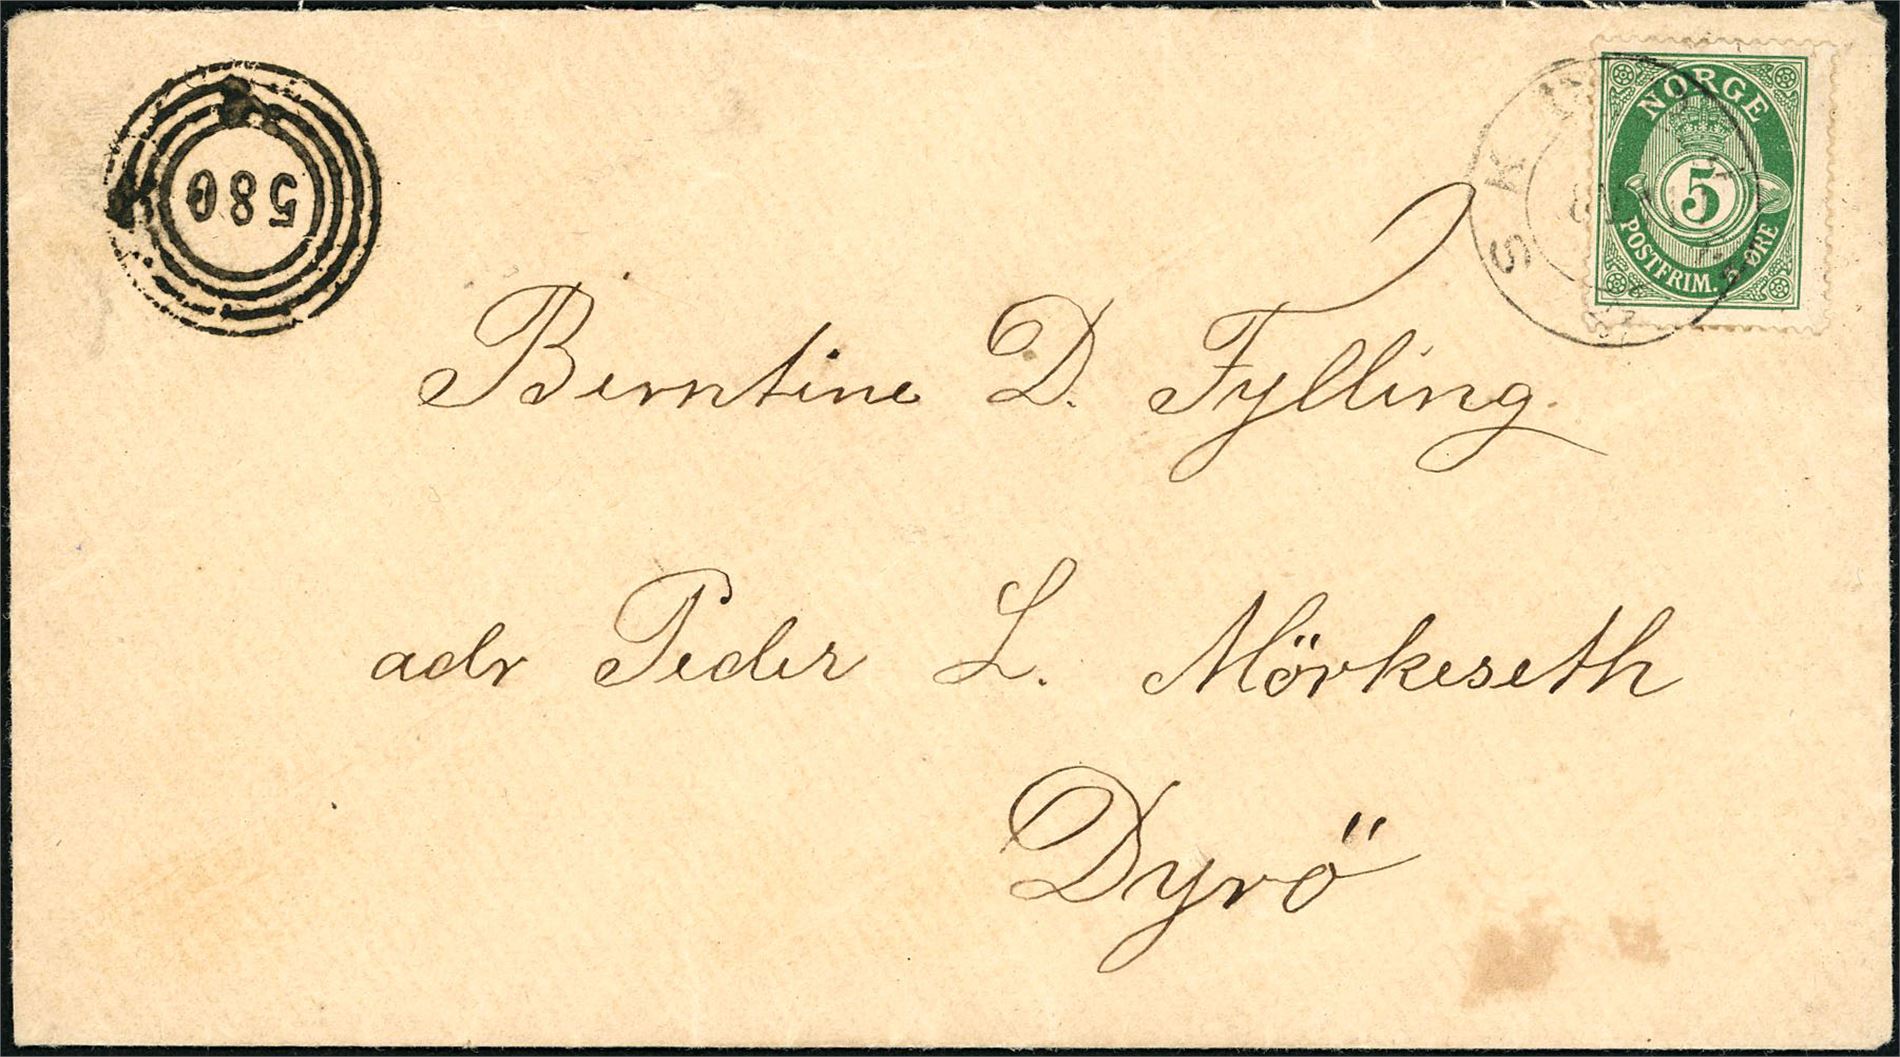 580
NORGE
5
POSTFRIM. 5 ØRE
Berntine D. Fylling.
adr Peder L. Mörkeseth
Dyrö